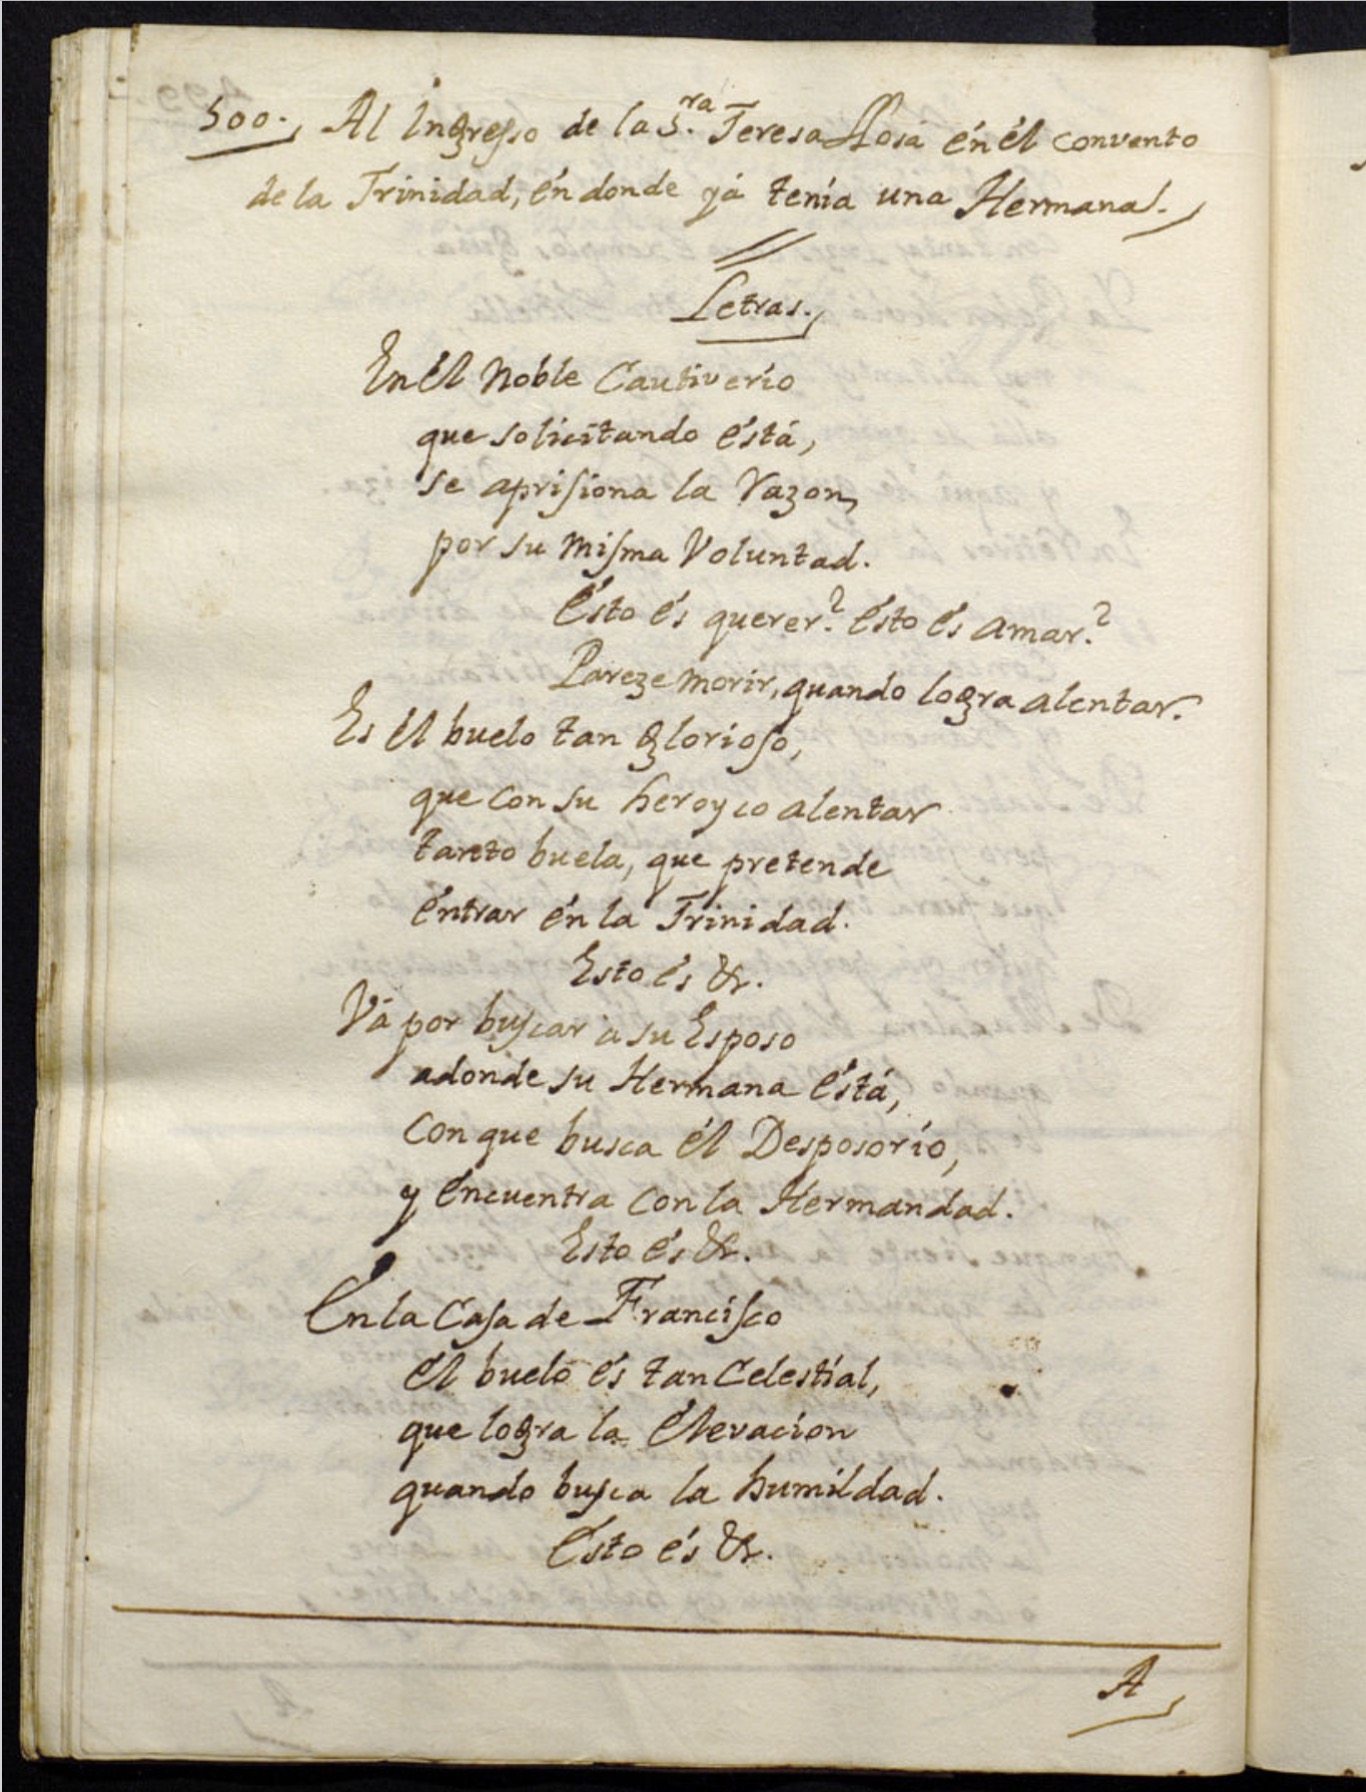 500., Al Ingresso de la S.ra Teresa Llosa én él convento
de la Trinidad, én donde yá tenia una Hermana.
Letras.
En él Noble Cautiverio
que solicitando está,
se aprisiona la razon,
por su misma Voluntad.
Ésto és querer? ésto és amar?
Pareze morir, quando logra alentar.
Es él buelo tan glorioso,
que con su heroyco alentar
tanto buela, que pretende
éntrar én la Trinidad.
Esto és &.
Vá por buscar á su Esposo
adonde su Hermana está,
con que busca él Desposorio,
y éncuentra con la Hermandad.
Esto és &.
En la Casa de Francisco
él buelo és tan Celestial,
que logra la élevacion
quando busca la humildad.
Ésto és &.
A